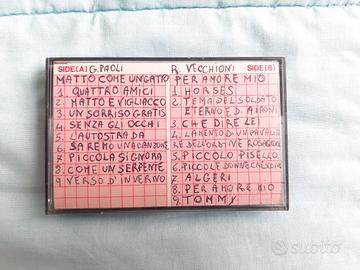 SIDE[A] G. PAOLI
MATTO COME UN GATTO
1 QUATTRO AMICI
2 MATTO E VIGLIACCO
3 UN SORRISO GRATIS
4 SENZA GLI OCCHI
5 L'AUTOSTRADA
6 SAREMO UNA CANZONE
7 PICCOLA SIGNORA
8 COME UN SERPENTE
9 VERSO D'INVERNO
R. VECCHIONI SIDE[B]
PER AMORE MIO
1. HORSES
2. TEMA DEL SOLDATO
ETERNO E D. AIRONI
3. CHE DIRE LEI
4. LAMENTO DI UN CAVALIE
RE DELL'ORDINE ROSACROCE
5. PICCOLO PISELLO
6. PICCOLE DONNE CRESCO
7. ALGERI
8. PER AMORE MIO
9. TOMMY
subito